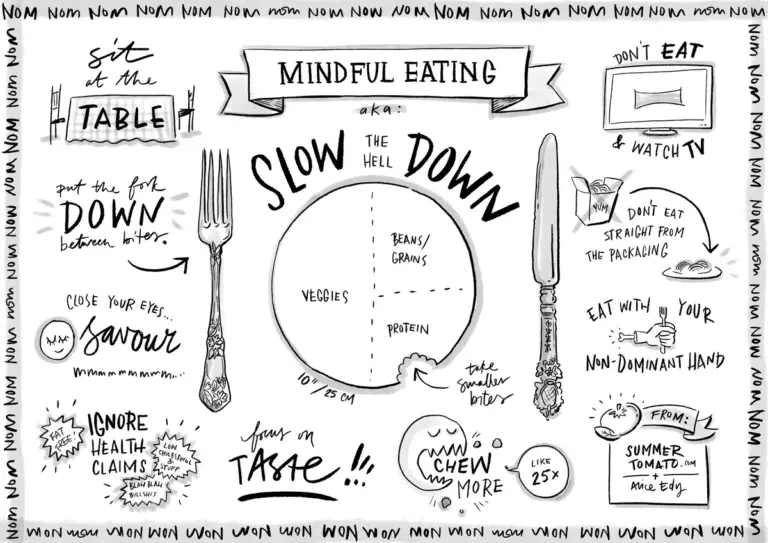 NOM NOM NOM nom NOM NOM NOM NOM nom NOM NOM NOM NOM NOM NOM NOM NOM nom NOM NOM
sit
at the
TABLE
MINDFUL EATING
aka:
SLOW THE HELL DOWN
DON'T EAT
& WATCH TV
put the fork
DOWN
between bites.
YUM
DON'T EAT
STRAIGHT FROM
THE PACKAGING
VEGGIES
BEANS/
GRAINS
PROTEIN
10"/25 CM
take
smaller
bites
CLOSE YOUR EYES...
savour
mmmmmmmm...
EAT WITH YOUR
NON-DOMINANT HAND
FAT FREE!
IGNORE
HEALTH
CLAIMS
LOW
CHOLESTEROL
&
STUFF
BLAH BLAH
BULLSHIT
focus on
TASTE!!!
CHEW
MORE
LIKE
25x
FROM:
SUMMER
TOMATO.COM
+
Alice Edy